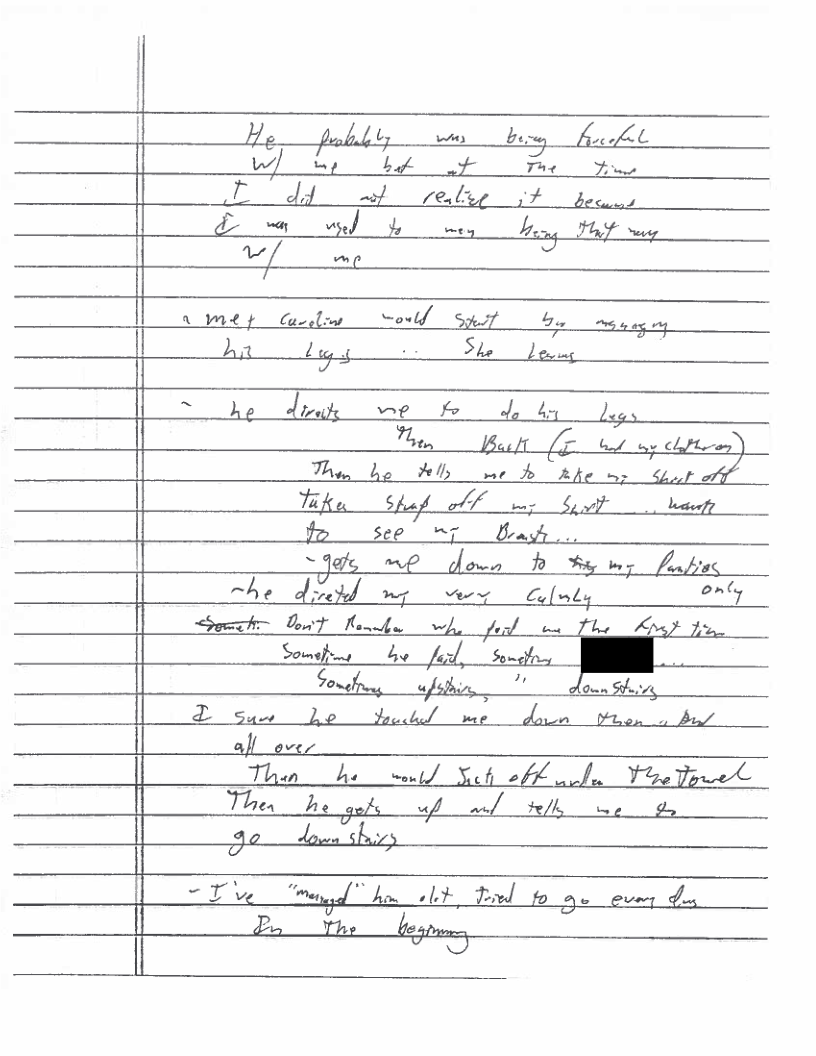 He probably was being forceful
w/ me but at the time
I did not realize it because
I was used to men being that way
w/ me
- me + Caroline would start by massaging
his legs .. She leaves
- he directs me to do his legs
Then Back (I had my clothes on)
Then he tells me to take my shirt off
takes strap off my shirt .. wants
to see my Breasts ...
- gets me down to my Panties
only
- he directed me very calmly
Don't Remember who paid me the first time
Sometime he paid, sometimes ...
Sometimes upstairs, " downstairs
I sure he touched me down there
all over
Then he would Jack off under the Towel
Then he gets up and tells me to
go downstairs
- I've "massaged" him alot, Tried to go every day
In the beginning